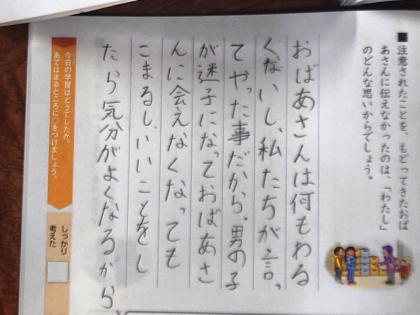 ■注意されたことを、もどってきたおば
あさんに伝えなかったのは、「わたし」
のどんな思いからでしょう。
おばあさんは何もわる
くないし、私たちが言っ
てやった事だから。男の子
が迷子になっておばあさ
んに会えなくなっても
こまるし、いいことをし
たら気分がよくなるから。
今日の学習はどうでしたか。
あてはまるところに○をつけましょう。
しっかり
考えた